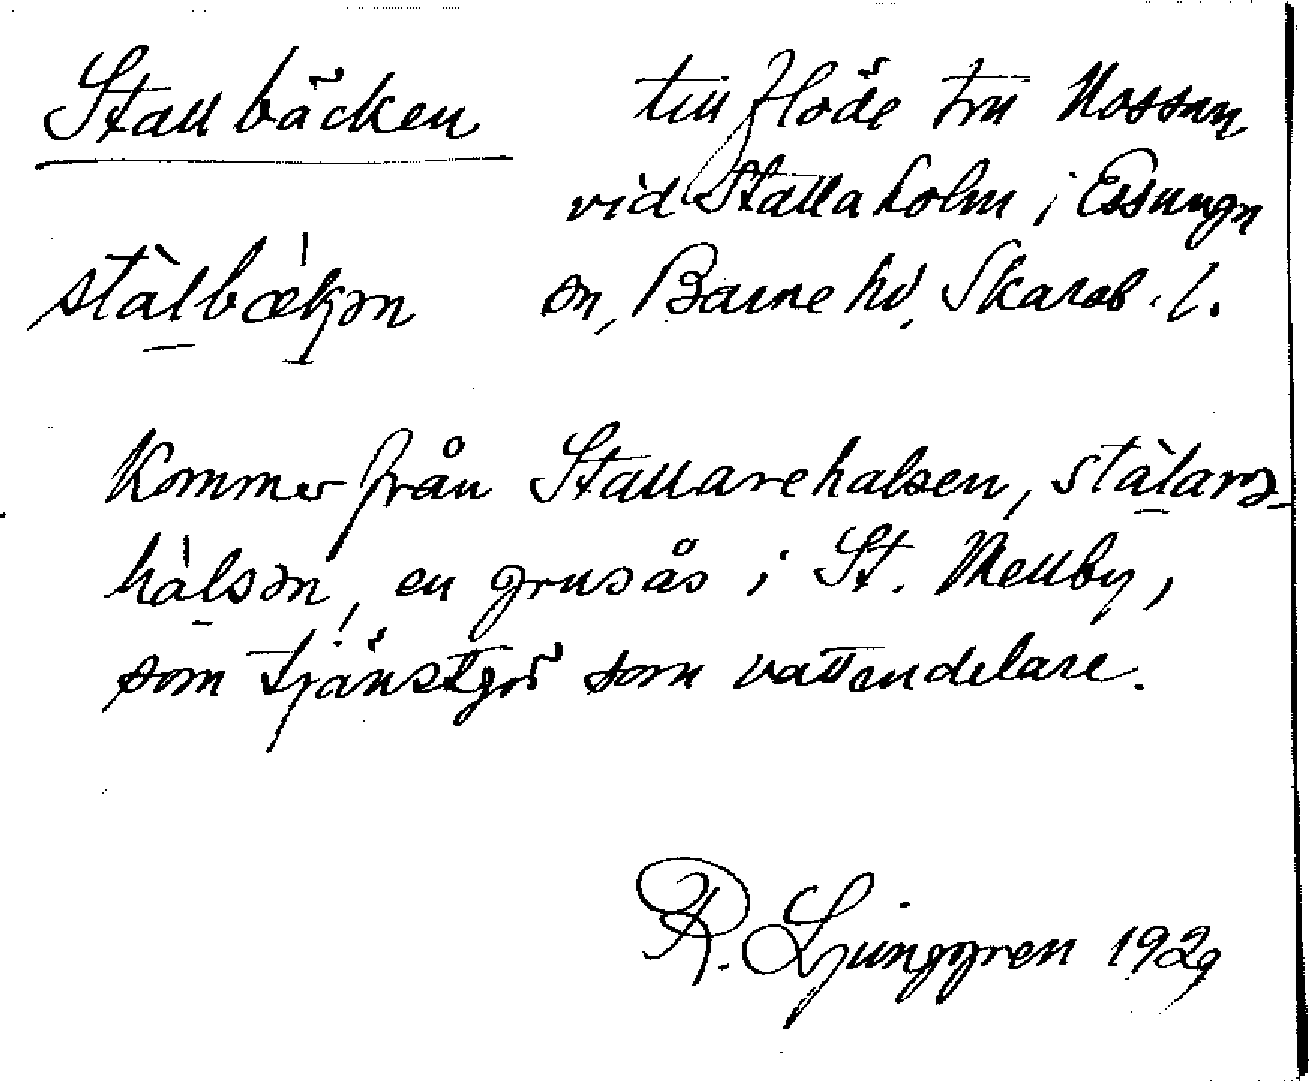 Stallbäcken tillflöde till Nossan
vid Stallaholm i Essunga
stàlbækən sn, Barne hd, Skarab. l.
Kommer från Stallarehalsen, stàlarə-
hàlsən, en grusås i St. Mellby,
som tjänstgör som vattendelare.
R. Ljunggren 1929